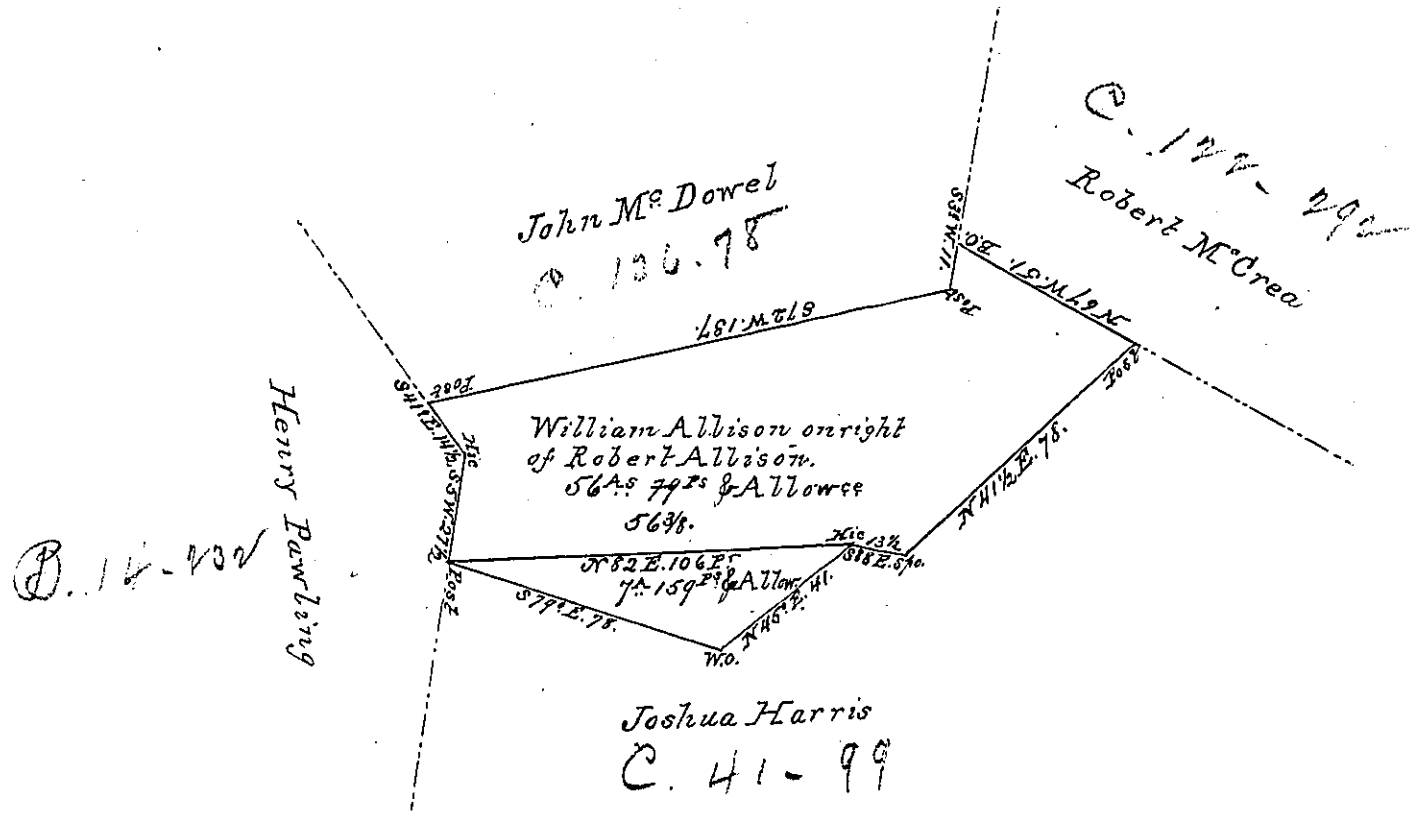 C. 122-292
Robert McCrea
John McDowel
C. 136.78
S3½W. 11.
B.O.
N67W. 51.
Post
S72W. 137.
Post
Post
S41½E. 14½.
Hic
S5W. 27½
Henry Pawling
William Allison on right
of Robert Allison.
56As 79Ps & Allowce
56⅜.
N41½E. 78.
Hic 13½
S88E. Spo.
N82E. 106 Ps
7A 159Ps & Allow.
Post
S79°E. 78.
N45°E. 41.
W.O.
Joshua Harris
C. 41-99